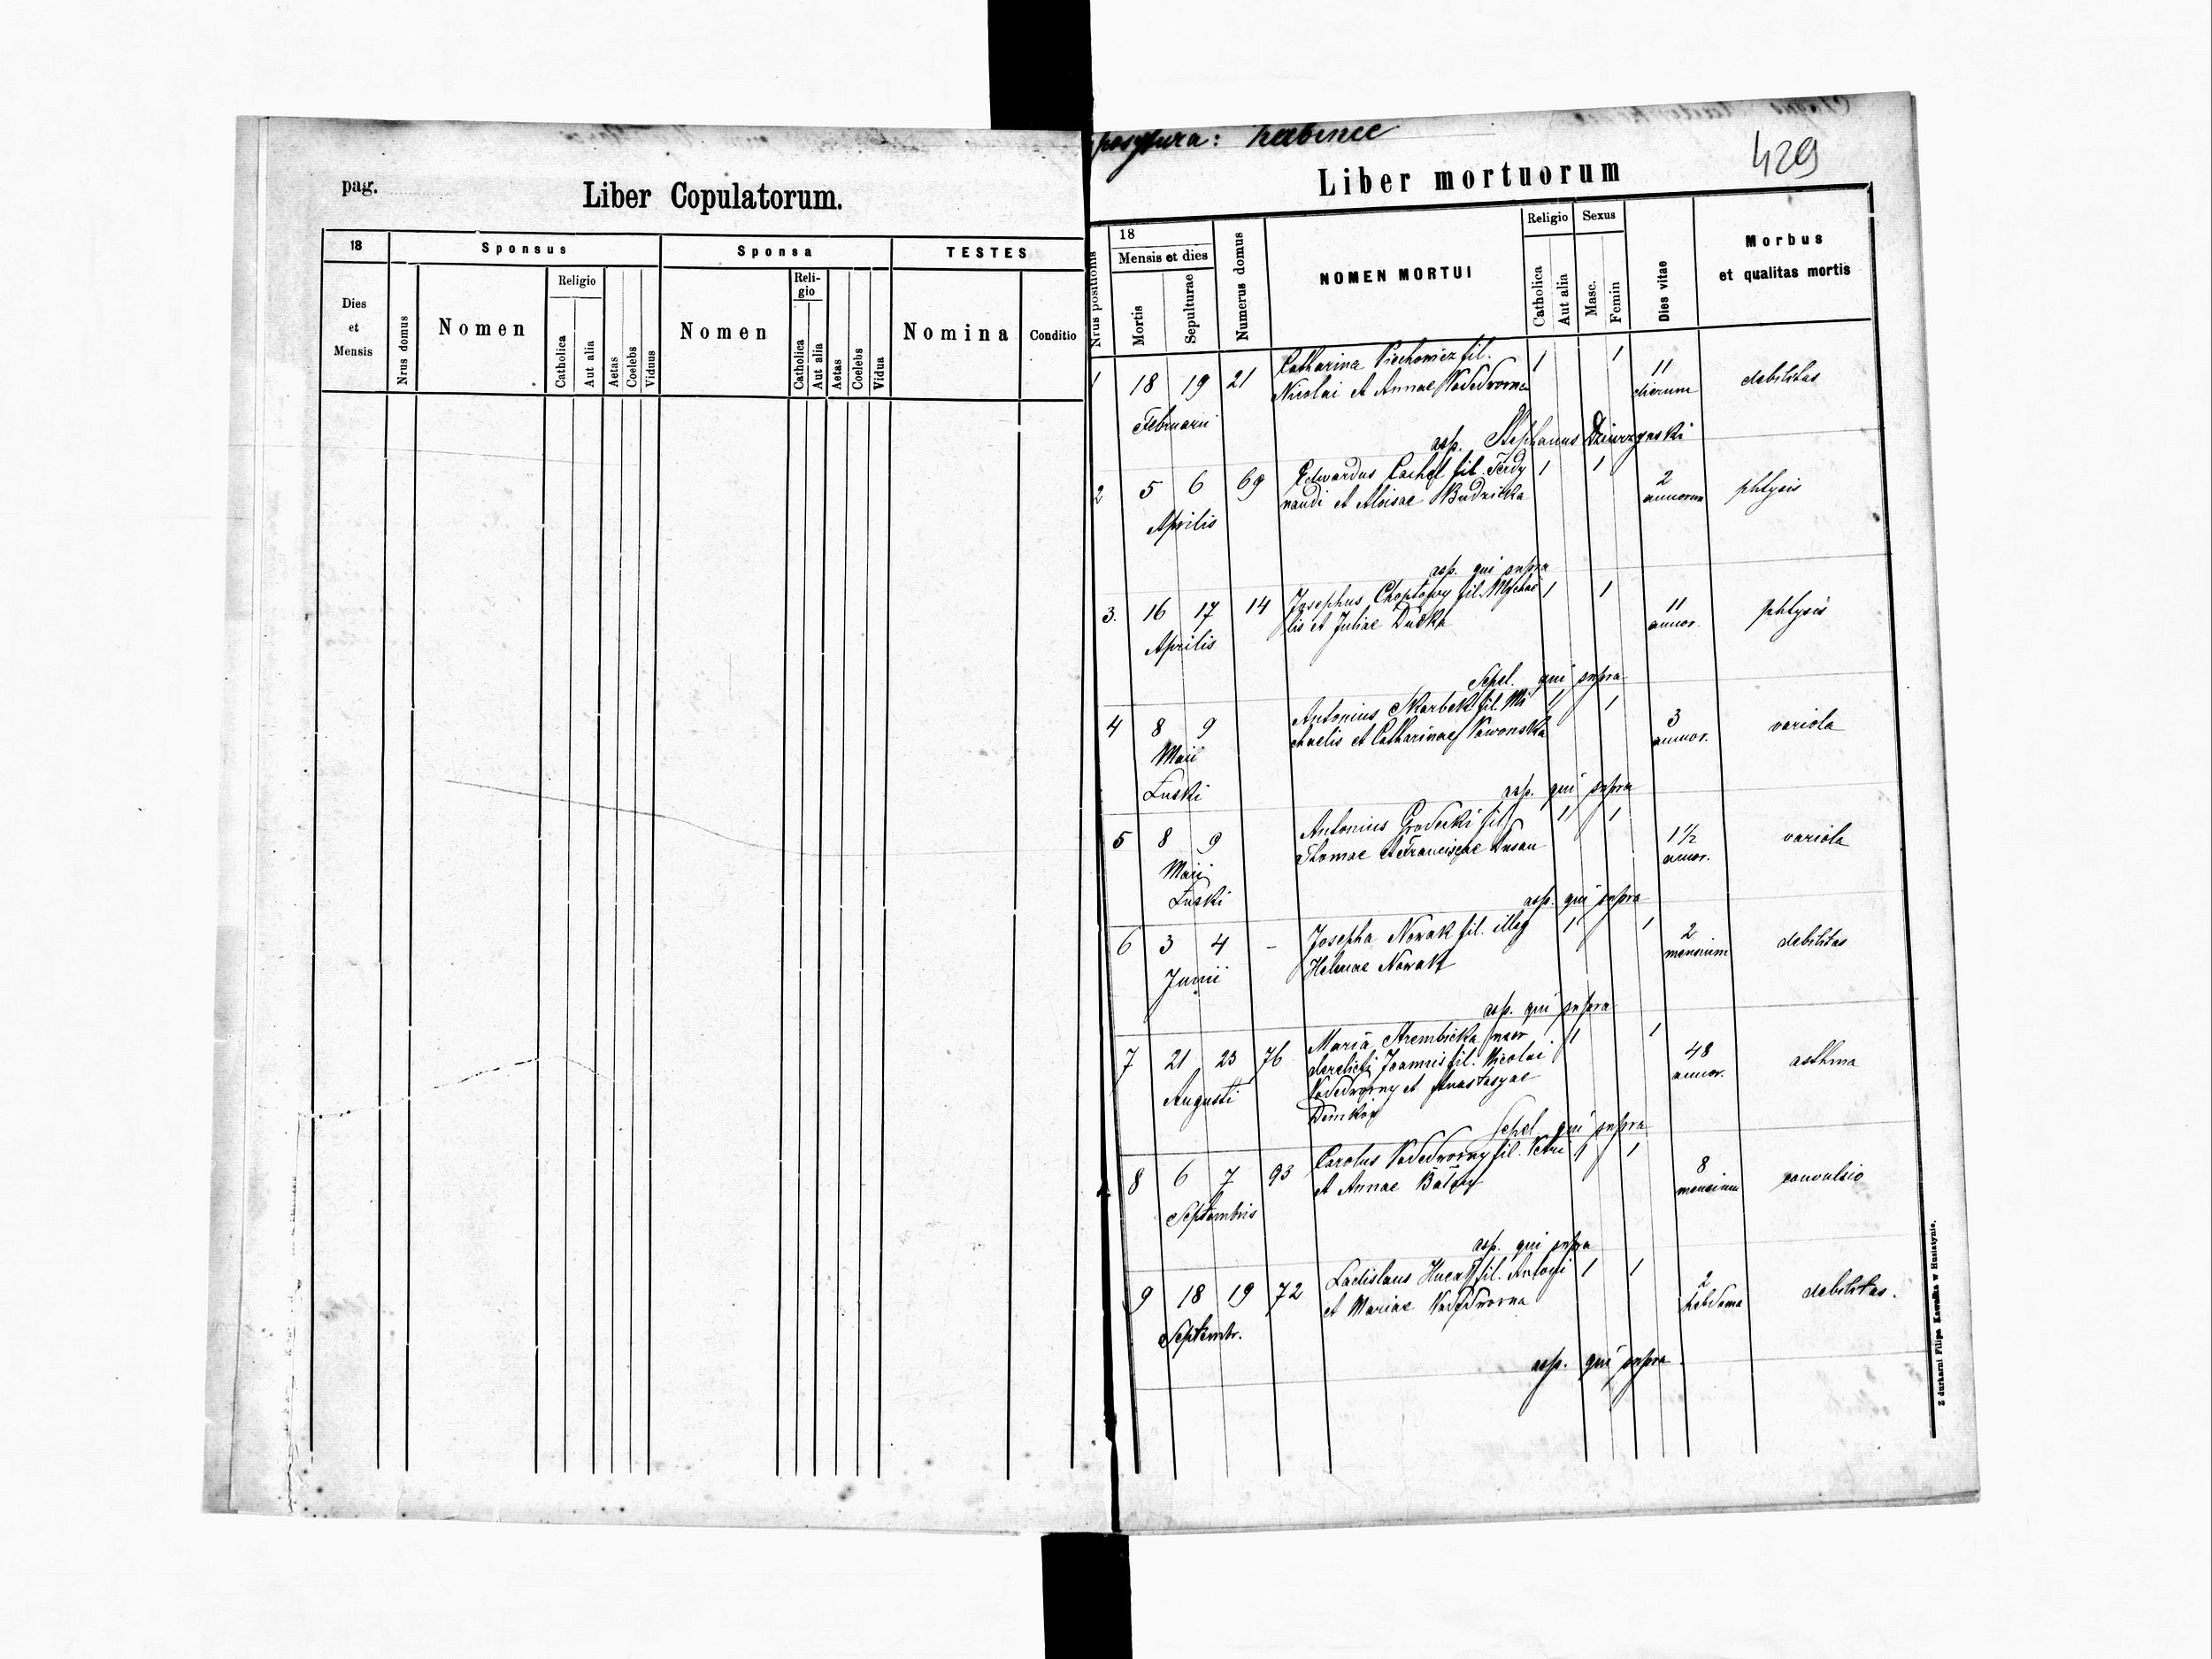 pag.
Liber Copulatorum.
18
Sponsus
Sponsa
TESTES
Dies
et
Mensis
Nrus domus
Nomen
Religio
Catholica
Aut alia
Aetas
Coelebs
Viduus
Nomen
Reli-
gio
Catholica
Aut alia
Aetas
Coelebs
Vidua
Nomina
Conditio
429
Liber mortuorum
Nrus positionis
18
Mensis et dies
Mortis
Sepulturae
Numerus domus
NOMEN MORTUI
Religio
Catholica
Aut alia
Sexus
Masc.
Femin
Dies vitae
Morbus
et qualitas mortis
1 18 19 21 Catharina Piechowicz fil. 1 1 11 debilitas
Nicolai et Annae Nadedworna dierum
Februarii
asp. Stephanus Dziurzynski
2 5 6 69 Edwardus Cachel fil. Ferdy 1 1 2 phtysis
nandi et Aloisae Budzicka annorum
Aprilis
asp. qui supra
3. 16 17 14 Josephus Choptowy fil. Mychae 1 1 11 phtysis
lis et Juliae Ducka annor.
Aprilis
Sepel. qui supra
4 8 9 Antonius Skarbek fil. Mi 1 1 3 variola
chaelis et Catharinae annor.
Maii
Łuski
asp. qui supra
5 8 9 Antonius Grodecki fil 1 1 1½ variola
Thomae et Franciscae Dusan annor.
Maii
Łuski
asp. qui supra
6 3 4 - Josepha Nowak fil. illeg 1 1 2 debilitas
Helenae Nowak mensium
Junii
asp. qui supra
7 21 23 76 Maria Strembicka uxor 1 1 48 asthma
derelicti Joannis fil. Nicolai annor.
Nadedworny et Anastasyae
Augusti
Demkow
Sepel. qui supra
8 6 7 93 Carolus Nadedworny fil. Petri 1 1 8 convulsio
et Annae mensium
Septembris
asp. qui supra
9 18 19 72 Ladislaus fil. Antoni 1 1 2 debilitas.
et Mariae Nadedworna hebdoma
Septembr.
asp. qui supra
Z durkarni Filipa Kawałka w Husiatynie.